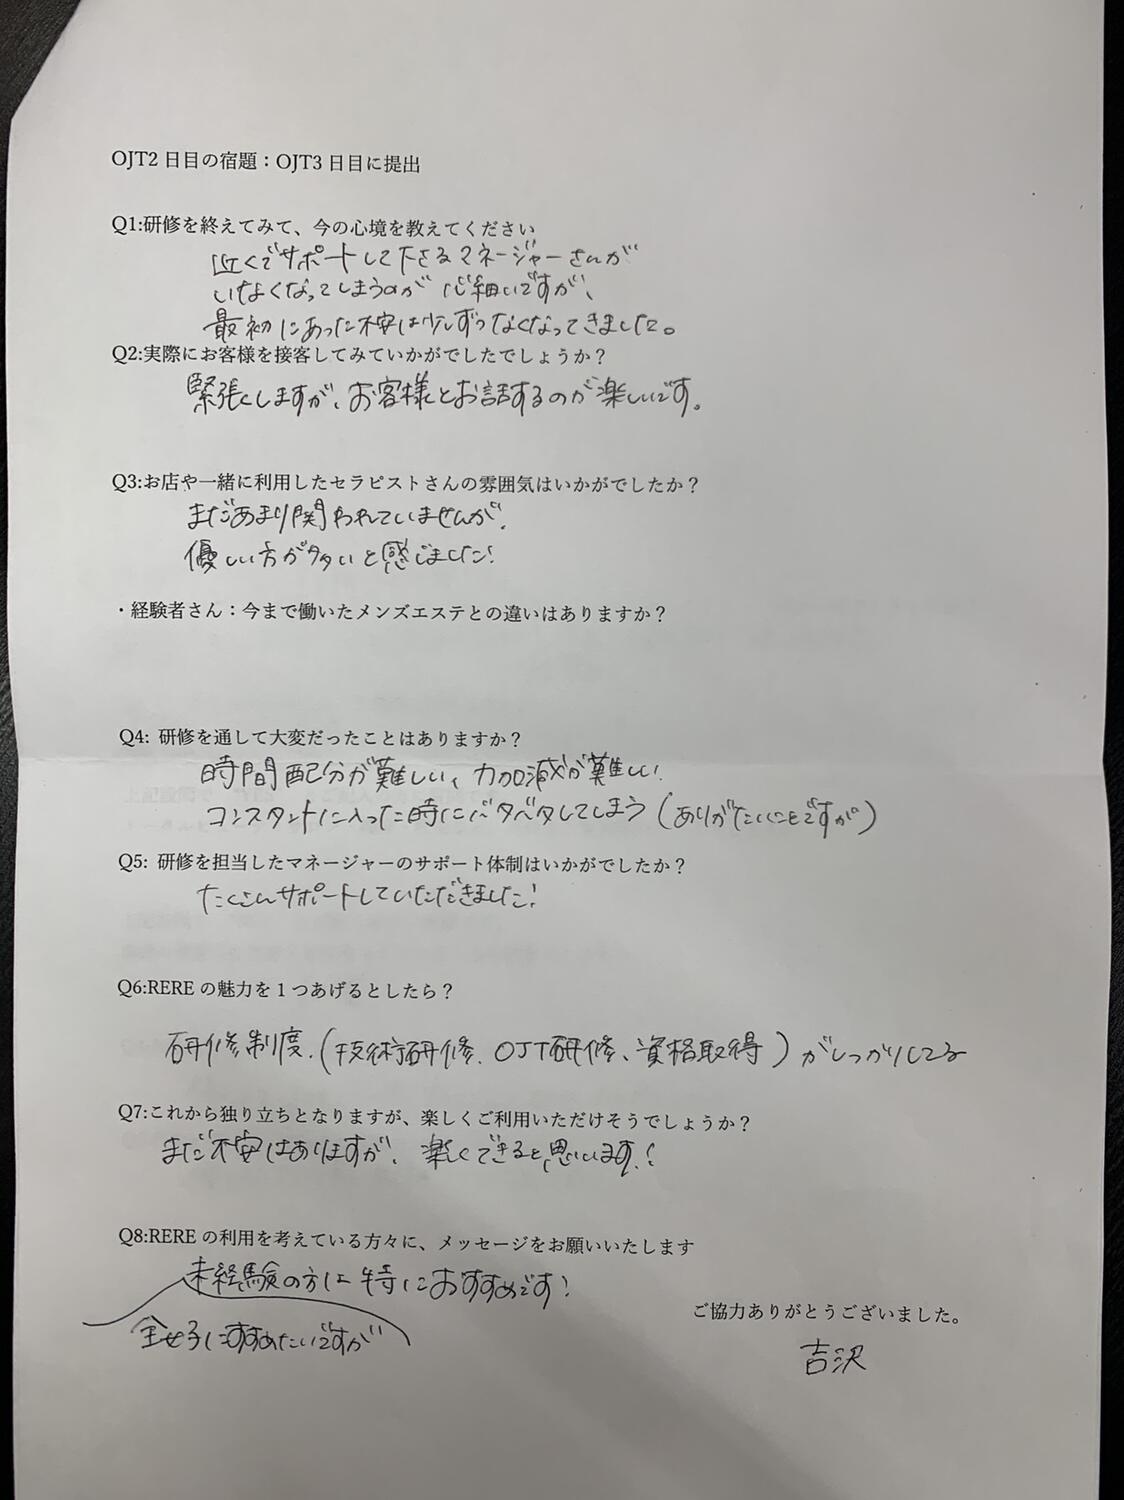 OJT2日目の宿題：OJT3日目に提出
Q1:研修を終えてみて、今の心境を教えてください
近くでサポートして下さるマネージャーさんが
いなくなってしまうのが心細いですが、
最初にあった不安は少しずつなくなってきました。
Q2:実際にお客様を接客してみていかがでしたでしょうか？
緊張しますが、お客様とお話するのが楽しいです。
Q3:お店や一緒に利用したセラピストさんの雰囲気はいかがでしたか？
まだあまり関われていませんが、
優しい方が多いと感じました!
・経験者さん：今まで働いたメンズエステとの違いはありますか？
Q4: 研修を通して大変だったことはありますか？
時間配分が難しい、力加減が難しい
コンスタントに入った時にバタバタしてしまう(ありがたいことですが)
Q5: 研修を担当したマネージャーのサポート体制はいかがでしたか？
たくさんサポートしていただきました!
Q6:REREの魅力を1つあげるとしたら？
研修制度、(技術研修、OJT研修、資格取得)がしっかりしてる
Q7:これから独り立ちとなりますが、楽しくご利用いただけそうでしょうか？
まだ不安はありますが、楽しくできると思います!
Q8:REREの利用を考えている方々に、メッセージをお願いいたします
未経験の方は特におすすめです!
全女子にすすめたいですが
ご協力ありがとうございました。
吉沢